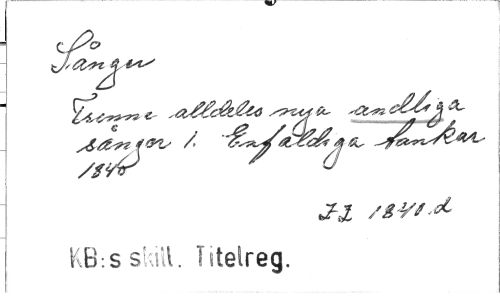 Sånger
Trenne alldeles nya andliga
sånger 1. Enfaldiga tankar
1840
1840.d
KB:s skill. Titelreg.